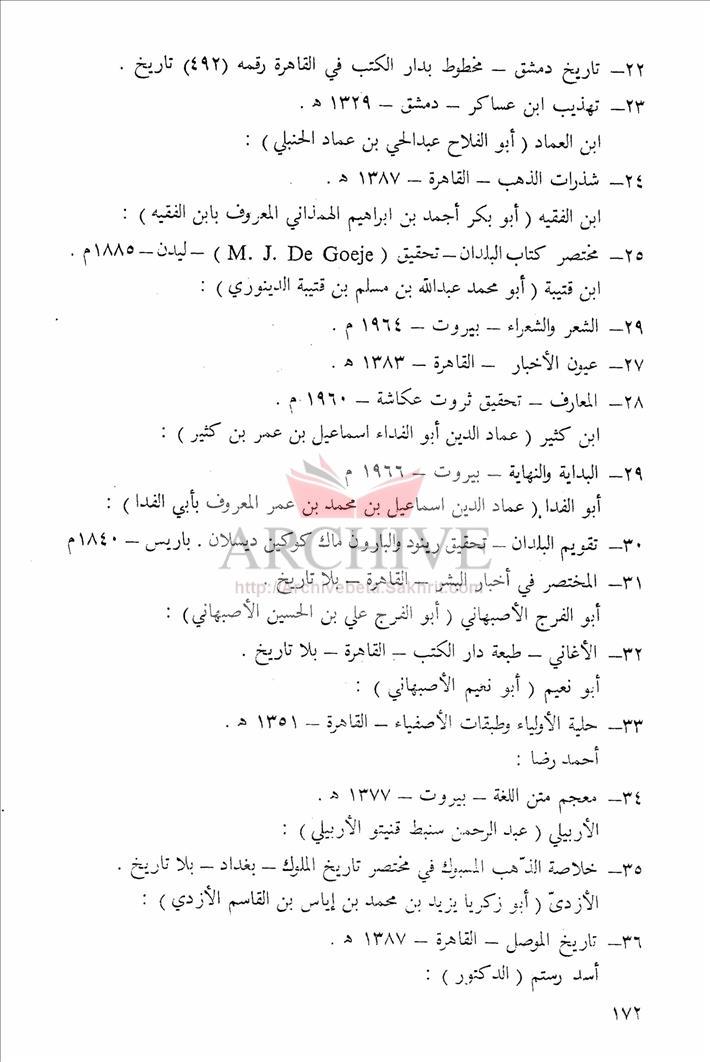 ٢٢ــ تاريخ دمشق ــ مخطوط بدار الكتب في القاهرة رقمه (٤٩٢) تاريخ .
٢٣ــ تهذيب ابن عساكر ــ دمشق ــ ١٣٢٩ ه .
ابن العماد ( أبو الفلاح عبدالحي بن عماد الحنبلي ) :
٢٤ــ شذرات الذهب ــ القاهرة ــ ١٣٨٧ ه .
ابن الفقيه ( أبو بكر أجمد بن ابراهيم الهمذاني المعروف بابن الفقيه ) :
٢٥ــ مختصر كتاب البلدان ــ تحقيق ( M. J. De Goeje ) ــ ليدن ــ ١٨٨٥م .
ابن قتيبة ( أبو محمد عبدالله بن مسلم بن قتيبة الدينوري ) :
٢٩ــ الشعر والشعراء ــ بيروت ــ ١٩٦٤ م .
٢٧ــ عيون الأخبار ــ القاهرة ــ ١٣٨٣ ه .
٢٨ــ المعارف ــ تحقيق ثروت عكاشة ــ ١٩٦٠ م .
ابن كثير ( عماد الدين أبو الفداء اسماعيل بن عمر بن كثير ) :
٢٩ــ البداية والنهاية ــ بيروت ــ ١٩٦٦ م
أبو الفدا ( عماد الدين اسماعيل بن محمد بن عمر المعروف بأبي الفدا ) :
ARCHIVE
٣٠ــ تقويم البلدان ــ تحقيق رينود والبارون ماك كوكين ديسلان . باريس ــ ١٨٤٠م
٣١ــ المختصر في أخبار البشر ــ القاهرة ــ بلا تاريخ .
http://Archivebeta.Sakhrit.com
أبو الفرج الأصبهاني ( أبو الفرج علي بن الحسين الأصبهاني) :
٣٢ــ الأغاني ــ طبعة دار الكتب ــ القاهرة ــ بلا تاريخ .
أبو نعيم ( أبو نعيم الأصبهاني ) :
٣٣ــ حلية الأولياء وطبقات الأصفياء ــ القاهرة ــ ١٣٥١ ه .
أحمد رضا :
٣٤ــ معجم متن اللغة ــ بيروت ــ ١٣٧٧ ه .
الأربيلي ( عبد الرحمن سنبط قنيتو الأربيلي ) :
٣٥ــ خلاصة الذّهب المسبوك في مختصر تاريخ الملوك ــ بغداد ــ بلا تاريخ .
الأزديّ ( أبو زكريا يزيد بن محمد بن إياس بن القاسم الأزدي ) :
٣٦ــ تاريخ الموصل ــ القاهرة ــ ١٣٨٧ ه .
أسد رستم ( الدكتور ) :
١٧٢